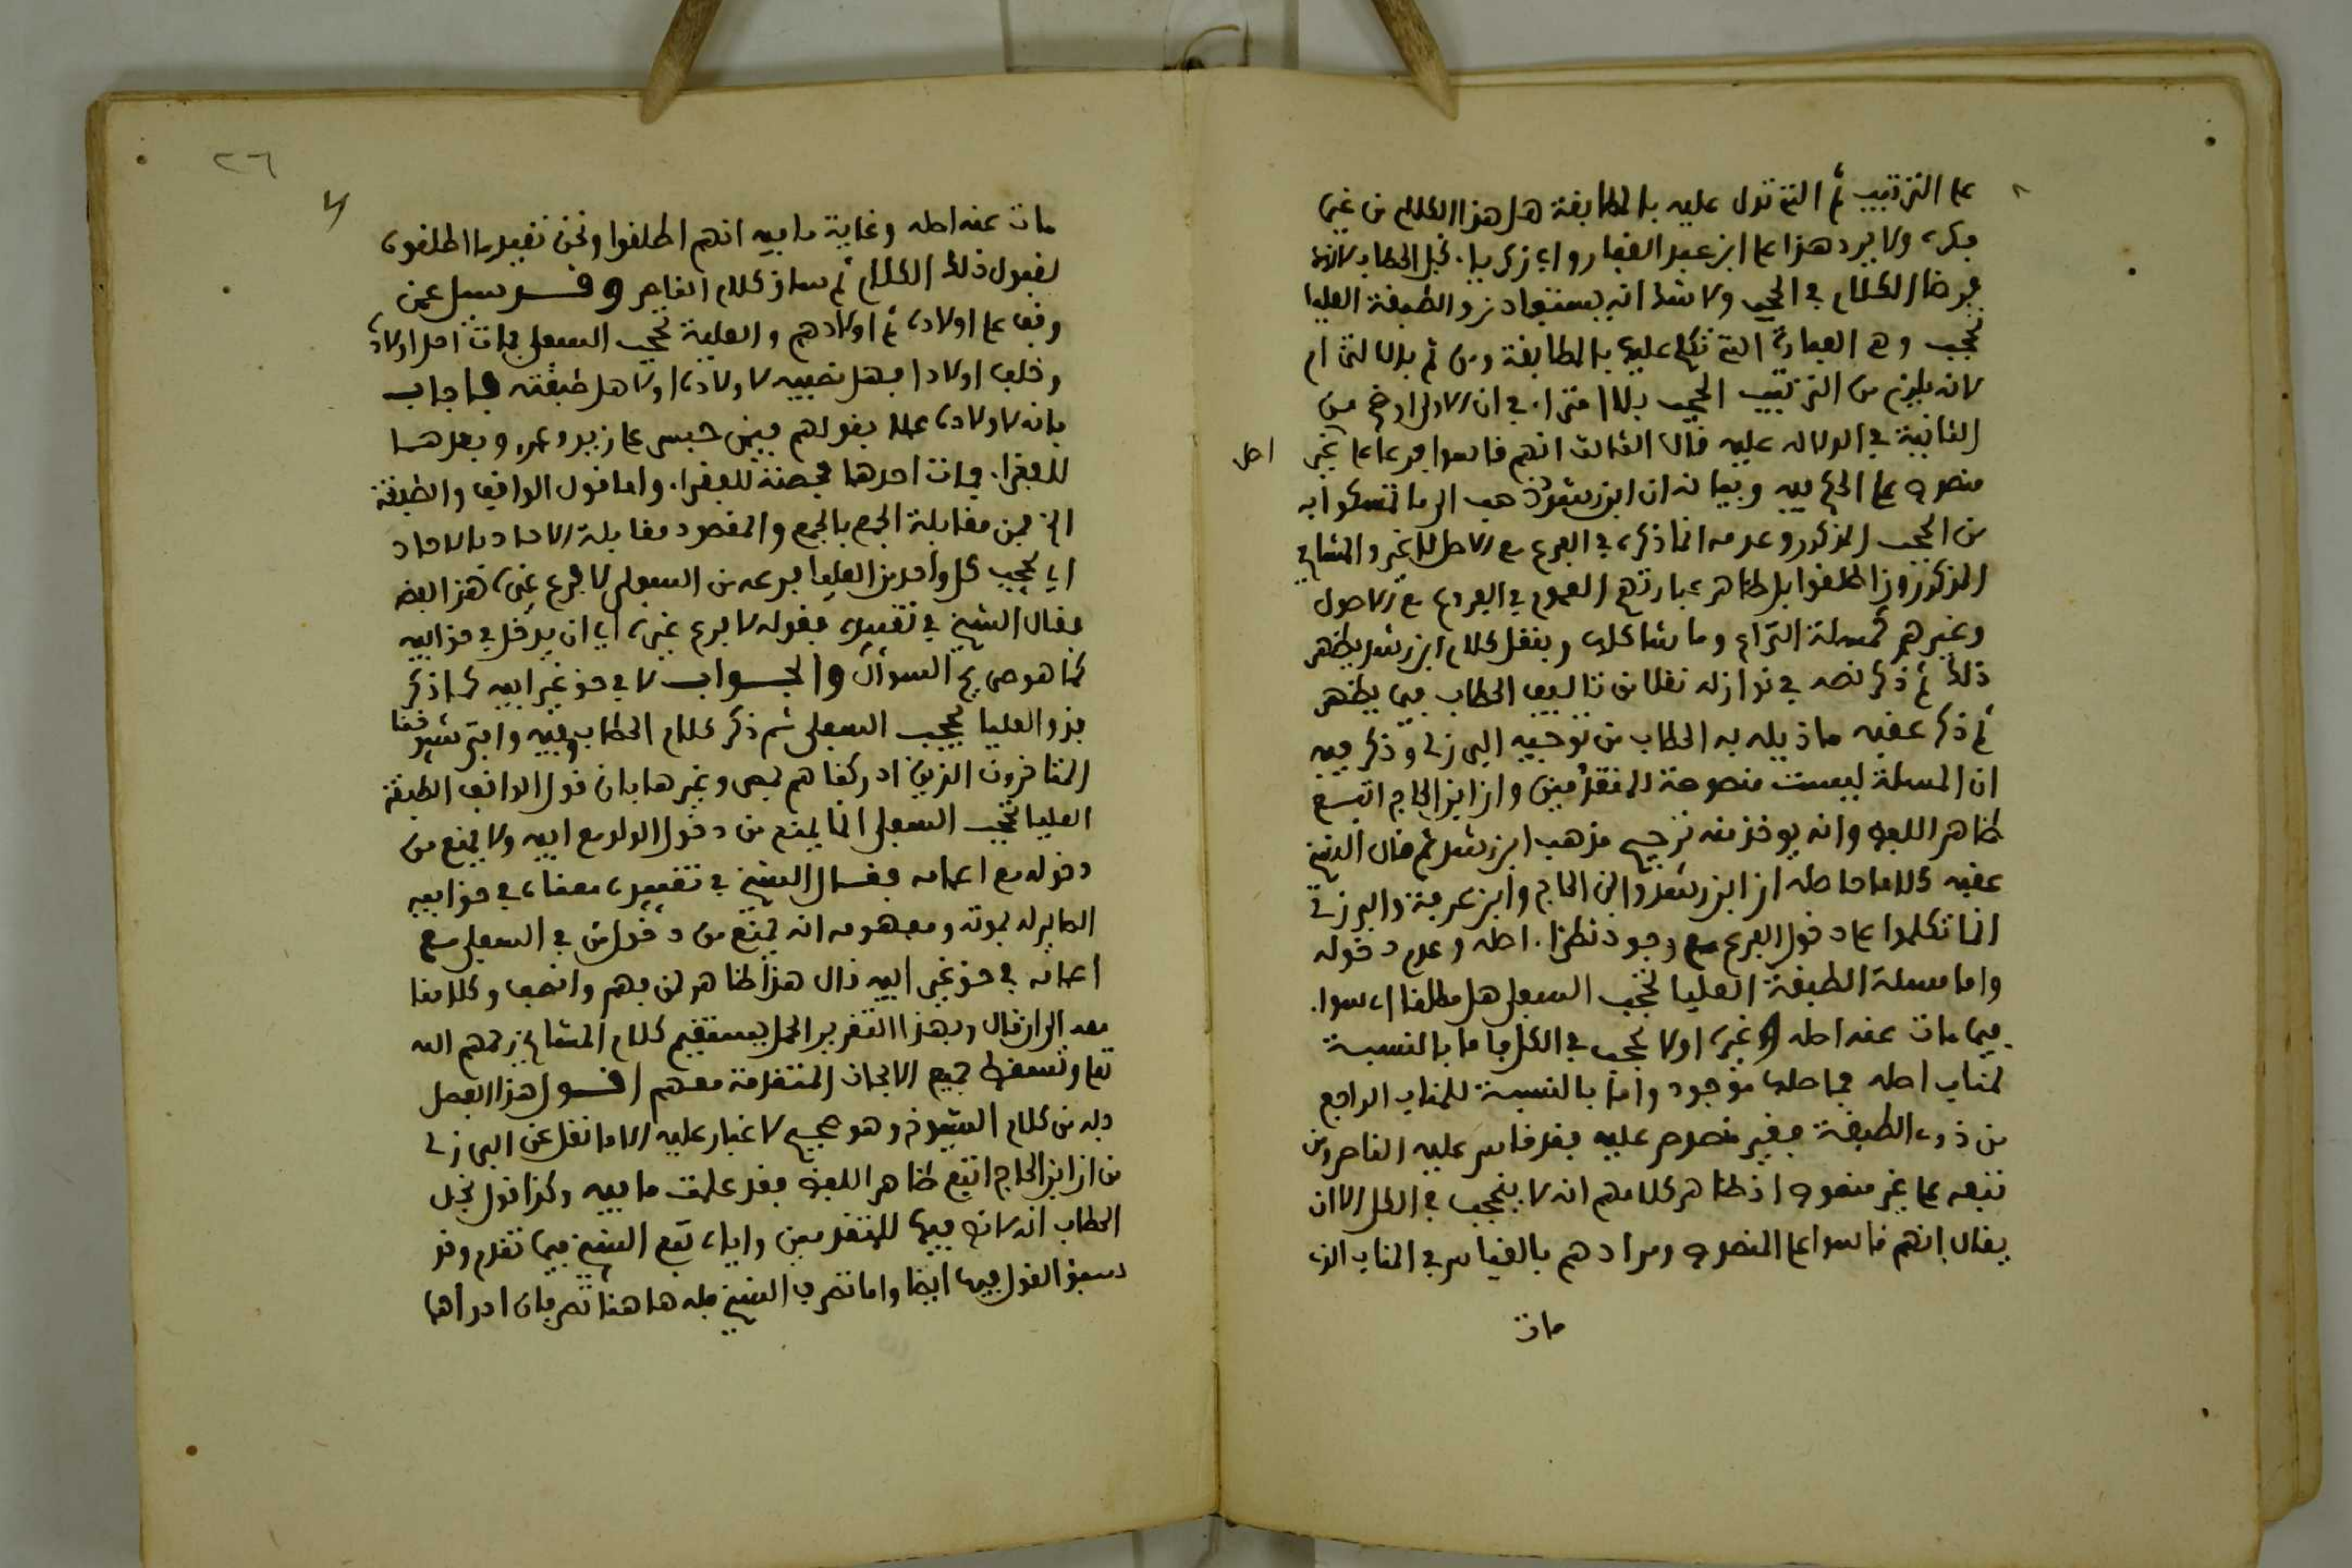 على الترتيب ثم التي تدل عليه بالمطابقة هل هذا الكلام من غير
فكره ولا يرد هذا على ابن عبد الغفار واى زكريا نجل الحطاب لانه
فرضا الكلام في الحجب ولا شك انه يستفاد من والطبقة العليا
تحجب وهي العبارة التي تكلم عليها بالمطابقة ومن ثم بالالتزام
لانه يلزم من الترتيب الحجب بلا امترا في ان الاول اوضح من
الثانية في الدلالة عليه قال الثالث انهم قاسوا فرعا على غير اصل
منصوص على الحكم فيه وبيانه ان ابن رشد ذهب الى ما تمسكوا به
من الحجب المذكور وعدمه انما ذكره في الفرع مع الاصل لا غير والمشايخ
المذكورون اطلقوا بل ظاهر عبارتهم العموم في الفروع مع الاصول
وغيرهم كمسئلة النزاع وما شاكلها وبنقل كلام ابن رشد يظهر
ذلك ثم ذكر نصه في نوازله نقلا من تاليف الحطاب فيما يظهر
ثم ذكر عقبه ما ذيله به الحطاب من توجيه البرزلي وذكر فيه
ان المسئلة ليست منصوصة للمتقدمين وان ابن الحاج اتبع
ظاهر اللفظ وانه يوخذ منه ترجيح مذهب ابن رشد ثم قال الشيخ
عقبه كلاما حاصله ان ابن رشد وابن الحاج وابن عرفة والبرزلي
انما تكلموا على دخول الفرع مع وجود نظراء اصله وعدم دخوله
واما مسئلة الطبقة العليا تحجب السفلى هل مطلقا اي سوا
فيما مات عنه اصله او غيره اولا تحجب في الكل فاما بالنسبة
لمناب اصله فاصلها موجود واما بالنسبة للمناب الراجع
من ذوى الطبقة فغير منصوص عليه فقد قاس عليه القاصرون
تبعه على غير منصوص اذ ظاهر كلامهم انه لا ينحجب في الكل الا ان
يقال انهم قاسوا على المنصوص ومرادهم بالقياس في المناب الذى
مات
٢٦
مات عنه اصله وغاية ما فيه انهم اطلقوا ونحن نقيد ما اطلقوه
لقبول ذلك الكلام ثم ساق كلام الناصر وقد سيل عمن
وقف على اولاده ثم اولادهم والعلية تحجب السفلى فمات احد اولاده
وخلف اولادا فهل نصيبه لاولاده او لاهل طبقته فاجاب
بانه لاولاده عملا بقولهم فيمن حبس على زيد وعمرو وبعدهما
للفقرا فمات احدهما فحصته للفقرا واما قول الواقف والطبقة
الخ فمن مقابلة الجمع بالجمع والمقصود مقابلة الاحاد بالاحاد
اى يحجب كل واحد من العليا فرعه من السفلى لا فرع غيره هذا لفظه
فقال الشيخ في تقييده فقوله لا فرع غيره اى ان يدخل في حق ابيه
كما هو صريح السوال والجواب لا في حق غير ابيه كما ذكر
فذو العليا يحجب السفلى ثم ذكر كلام الحطاب وفيه وافتى شيوخنا
المتاخرون الذين ادركناهم بمصر وغيرها بان قول الواقف الطبقة
العليا تحجب السفلى انما يمنع من دخول الولد مع ابيه ولا يمنع من
دخوله مع اعمامه فقال الشيخ في تقييده معناه في حق ابيه
الصاير له بموته ومفهومه انه يمنع من دخول من في السفلى مع
اعمامه في حق غير ابيه قال هذا ظاهر لمن فهم وانصف وكلامنا
معه الى ان قال وبهذا التقرير الحمل يستقيم كلام المشايخ رحمهم الله
تعا وتسقط جميع الابحاث المتقدمة معهم اقول هذا الفصل
جله من كلام الشيوخ وهو صحيح لا غبار عليه الا ما نقل عن البرزلي
من ان ابن الحاج اتبع ظاهر اللفظ فقد علمت ما فيه وكذا قول نجل
الحطاب انه لا نص فيها للمتقدمين واياه تبع الشيخ فيما تقدم وقد
سبق القول فيها ايضا واما تصرف الشيخ فله ها هنا تصرفان احدهما